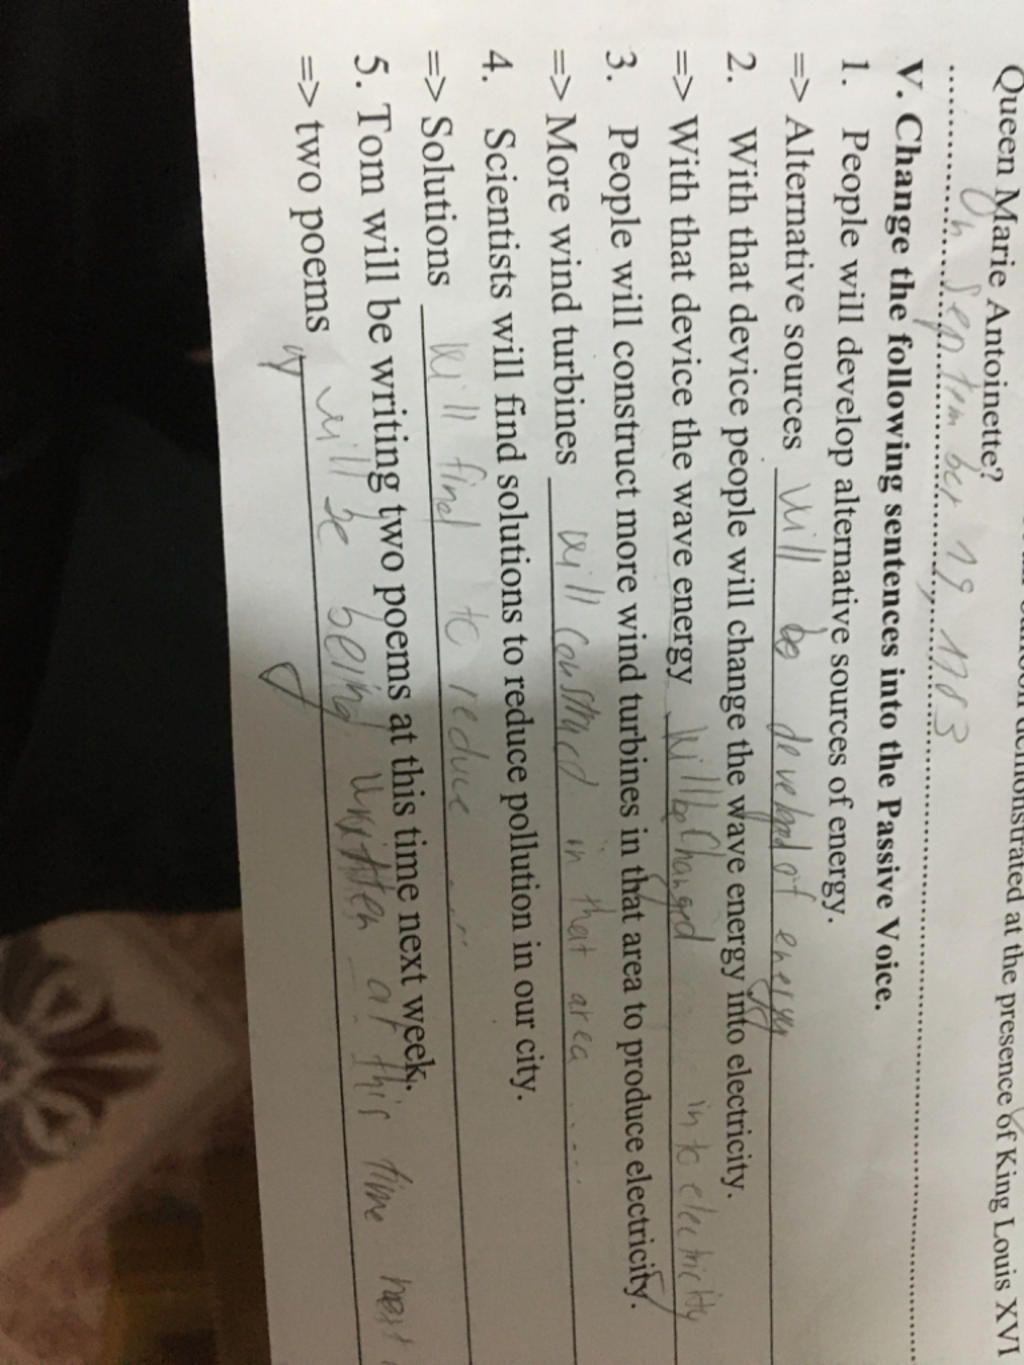 demonstrated at the presence of King Louis XVI
Queen Marie Antoinette?
On September 19 1783
V. Change the following sentences into the Passive Voice.
1. People will develop alternative sources of energy.
=> Alternative sources will be of energy
2. With that device people will change the wave energy into electricity.
=> With that device the wave energy will be changed into electricity
3. People will construct more wind turbines in that area to produce electricity.
=> More wind turbines will in that area ....
4. Scientists will find solutions to reduce pollution in our city.
=> Solutions will find to reduce ...
5. Tom will be writing two poems at this time next week.
=> two poems will be being at this time next